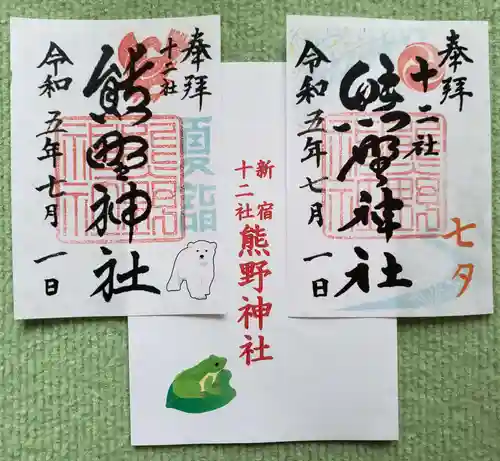 奉拝
十二社
熊野神社
令和五年七月一日
夏詣
新宿
十二社
熊野神社
奉拝
十二社
熊野神社
令和五年七月一日
七夕